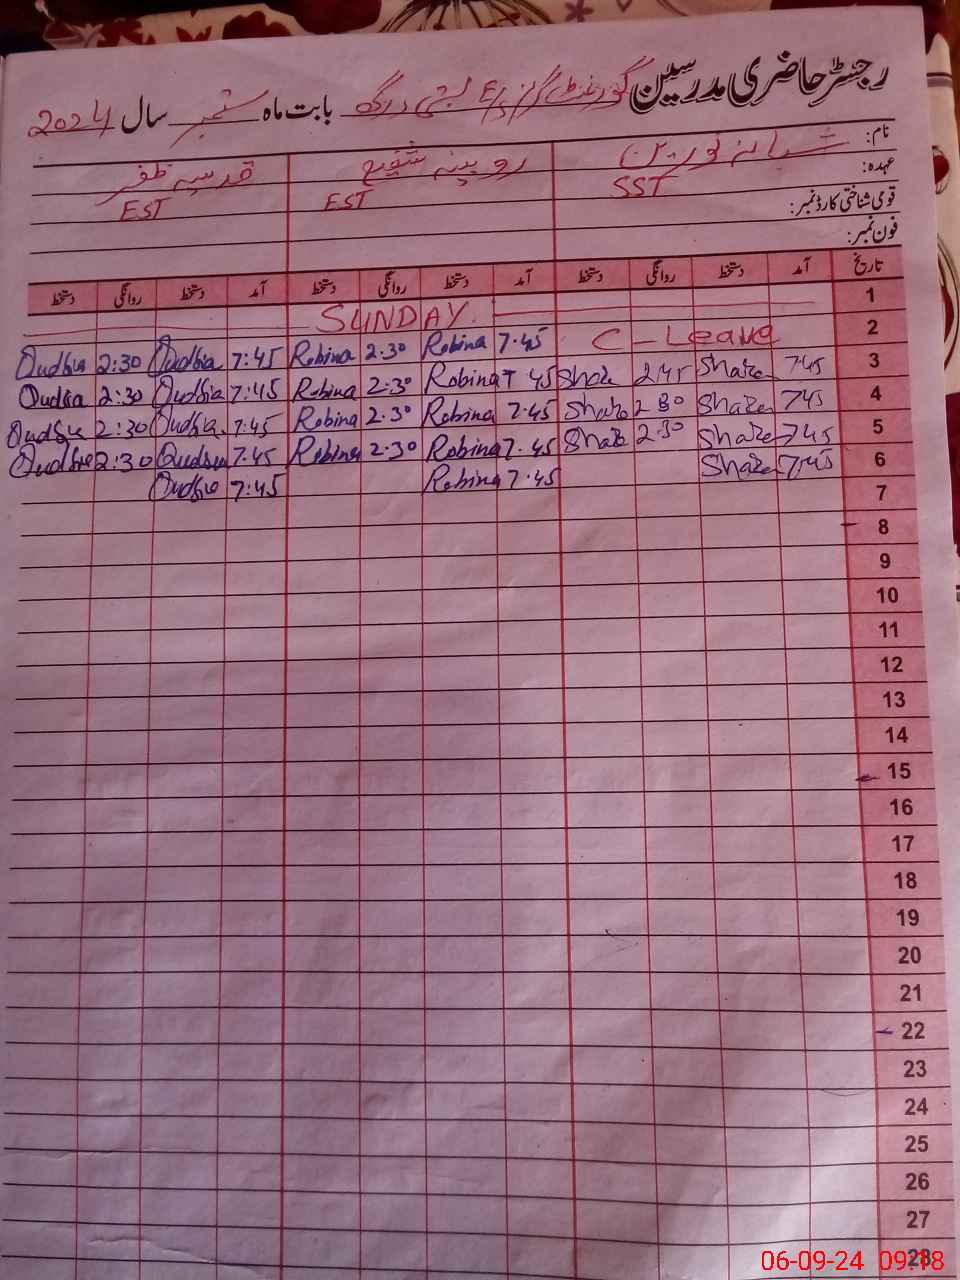 رجسٹر حاضری مدرسین گورنمنٹ گرلز بستی درگہ بابت ماہ ستمبر سال 2024
نام: شبانہ نورین روبینہ شفیع قدسیہ ظفر
عہدہ: SST EST EST
قومی شناختی کارڈ نمبر:
فون نمبر:
تاریخ آمد دستخط روانگی دستخط آمد دستخط روانگی دستخط آمد دستخط روانگی دستخط
1 SUNDAY
2 C-Leave 7.45 Robina 2.30 Robina 7:45 Qudsia 2:30 Qudsia
3 7.45 2.45 7.45 Robina 2.30 Robina 7:45 Qudsia 2:30 Qudsia
4 7.45 2.30 7.45 Robina 2.30 Robina 7:45 Qudsia 2:30 Qudsia
5 7.45 2.30 7.45 Robina 2.30 Robina 7.45 Qudsia 2:30 Qudsia
6 7.45 7.45 Robina 7:45 Qudsia
7
8
9
10
11
12
13
14
15
16
17
18
19
20
21
22
23
24
25
26
27
28
06-09-24 09:18